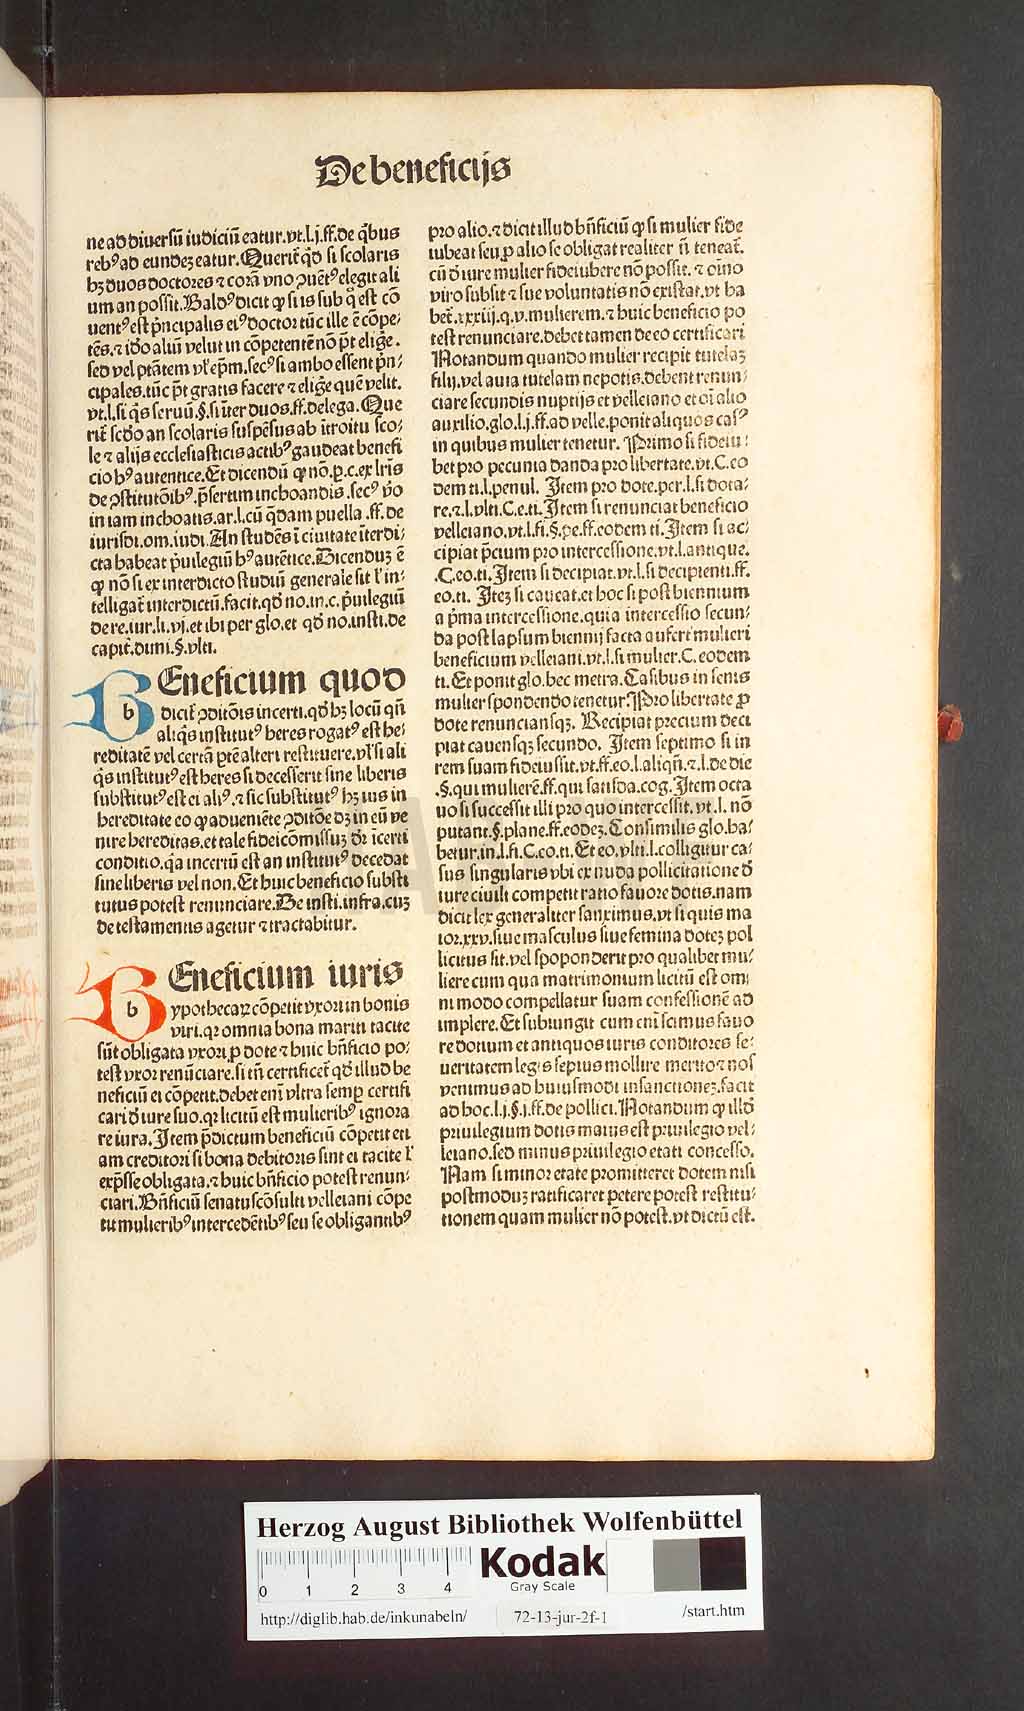 De beneficijs
ne ad diuersũ iudiciũ eatur.vt.l.j.ff.de q̃bus
rebꝰ ad eundeꝫ eatur. Querit̃ q̃d si scolaris
hꝫ duos doctores ⁊ corã vno ꝯuẽtꝰ elegit ali
um an possit. Baldꝰ dicit ꝙ si is sub q̃ est cõ
uentꝰ est p̃ncipalis eiꝰ doctor tũc ille ẽ cõpe-
tẽs.⁊ iõo aliũ velut incõpetentẽ nõ p̃t elig̃e.
sed vel p̃tãtem vl̃ ep̃m.secꝰ si ambo essent p̃n-
cipales.tũc p̃t gratis facere ⁊ elig̃e quẽ velit.
vt.l.si q̃s seruũ.§.si iter duos.ff.de lega. Que
rit̃ scõo an scolaris suspẽsus ab ĩtroitu sco-
le ⁊ alijs ecclesiasticis actibꝰ gaudeat benefi
cio hꝰ autentice. Et dicendũ ꝙ nõ.p.c.ex lr̃is
de ꝯstitutõibꝰ.p̃sertim inchoandis.secꝰ v̾o
in iam inchoatis.ar.l.cũ q̃dam puella.ff.de
iurisdi.om.iudi. An studẽs ĩ ciuitate ĩterdi-
cta habeat p̃uilegiũ hꝰ autẽtice. Dicenduꝫ ẽ
ꝙ nõ si ex interdicto studiũ generale sit l̃ in-
telligat̃ interdictũ.facit.qd̃ no.in.c.p̃uilegiũ
de re.iur.li.vj.et ibi per glo.et qd̃ no.insti.de
capit̃.dimi.§.vlti.
BEneficium quod
b
dicit̃ ꝯditõis incerti.qd̃ hꝫ locũ qñ
aliq̃s institutꝰ heres rogatꝰ est he-
reditatẽ vel certã p̃tẽ alteri restituere.vl̃ si ali
q̃s institutꝰ est heres si decesserit sine liberis
substitutꝰ est ei aliꝰ.⁊ sic substitutꝰ hꝫ ius in
hereditate eo ꝙ adueniẽte ꝯditõe dꝫ in eũ ve
nire hereditas.et tale fideicõmissuꝫ dr̃ ĩcerti
conditio.q̃a incertũ est an institutꝰ decedat
sine liberis vel non. Et huic beneficio substi
tutus potest renunciare. De insti.infra.cuꝫ
de testamentis agetur ⁊ tractabitur.
BEneficium iuris
b
ypothecaꝝ cõpetit vxori in bonis
viri.qꝛ omnia bona mariti tacite
sũt obligata vxori ꝓ dote ⁊ huic bñficio po-
test vxor renũciare.si tñ certificet̃ qd̃ illud be
neficiũ ei cõpetit.debet em̃ vltra semp̱ certifi
cari d̃ iure suo.qꝛ licitũ est mulieribꝰ ignora
re iura. Item p̃dictum beneficiũ cõpetit eti
am creditori si bona debitoris sint ei tacite l̃
exp̃sse obligata.⁊ huic bñficio potest renun-
ciari. Bñficiũ senatuscõsulti velleiani cõpe
tit mulieribꝰ intercedẽtibꝰ seu se obligantibꝰ
pro alio.⁊ dicit illud bñficiũ ꝙ si mulier fide
iubeat seu ꝓ alio se obligat realiter ñ teneat̃.
cũ d̃ iure mulier fideiubere nõ possit.⁊ oĩno
viro subsit ⁊ sue voluntatis nõ existat.vt ha
bet̃.xxxiij.q.v.mulierem.⁊ huic beneficio po
test renunciare.debet tamen de eo certificari
Notandum quando mulier recipit tutelaꝫ
filij.vel auia tutelam nepotis.debent renun-
ciare secundis nuptijs et velleiano et oĩ alio
auxilio.glo.l.j.ff.ad velle.ponit aliquos casꝰ
in quibus mulier tenetur. Primo si fideiu-
bet pro pecunia danda pro libertate.vt.C.eo
dem ti.l.penul. Item pro dote.per.l.si dota-
re.⁊.l.vlti.C.e.ti. Item si renunciat beneficio
velleiano.vt.l.fi.§.pe.ff.eodem ti. Item si ac-
cipiat p̃cium pro intercessione.vt.l.antique.
.C.eo.ti. Item si decipiat.vt.l.si decipienti.ff.
eo.ti. Iteꝫ si caueat.et hoc si post biennium
a p̃ma intercessione.quia intercessio secun-
da post lapsum biennij facta aufert mulieri
beneficium velleiani.vt.l.si mulier.C.eodem
ti. Et ponit glo.hec metra. Casibus in senis
mulier spondendo tenetur. Pro libertate ꝓ
dote renunciansqꝫ. Recipiat precium deci
piat cauensqꝫ secundo. Item septimo si in
rem suam fideiussit.vt.ff.eo.l.aliqñ.⁊.l.de die
.§.qui mulierẽ.ff.qui satisda.cog. Item octa
uo si successit illi pro quo intercessit.vt.l.nõ
putant.§.plane.ff.eodeꝫ. Consimilis glo.ha-
betur.in.l.fi.C.eo.ti. Et eo.vlti.l.colligitur ca-
sus singularis vbi ex nuda pollicitatione d̃
iure ciuili competit ratio fauore dotis.nam
dicit lex generaliter sanximus.vt si quis ma
ior.xxv.siue masculus siue femina doteꝫ pol
licitus sit.vel spoponderit pro qualibet mu-
liere cum qua matrimonium licitũ est om-
ni modo compellatur suam confessionẽ ad
implere. Et subiungit cum em̃ scimus fauo
re dotium et antiquos iuris conditores se-
ueritatem legis sepius mollire merito ⁊ nos
venimus ad huiusmodi insanctioneꝫ.facit
ad hoc.l.j.§.j.ff.de pollici. Notandum ꝙ illd̃
priuilegium dotis maius est priuilegio vel-
leiano.sed minus priuilegio etati concesso.
Nam si minor etate promitteret dotem nisi
postmoduꝫ ratificaret petere potest restitu-
tionem quam mulier nõ potest.vt dictũ est.
Herzog August Bibliothek Wolfenbüttel
0 1 2 3 4
Kodak
Gray Scale
http://diglib.hab.de/inkunabeln/ 72-13-jur-2f-1 /start.htm